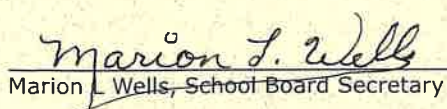 Marion L. Wells
Marion L Wells, School Board Secretary